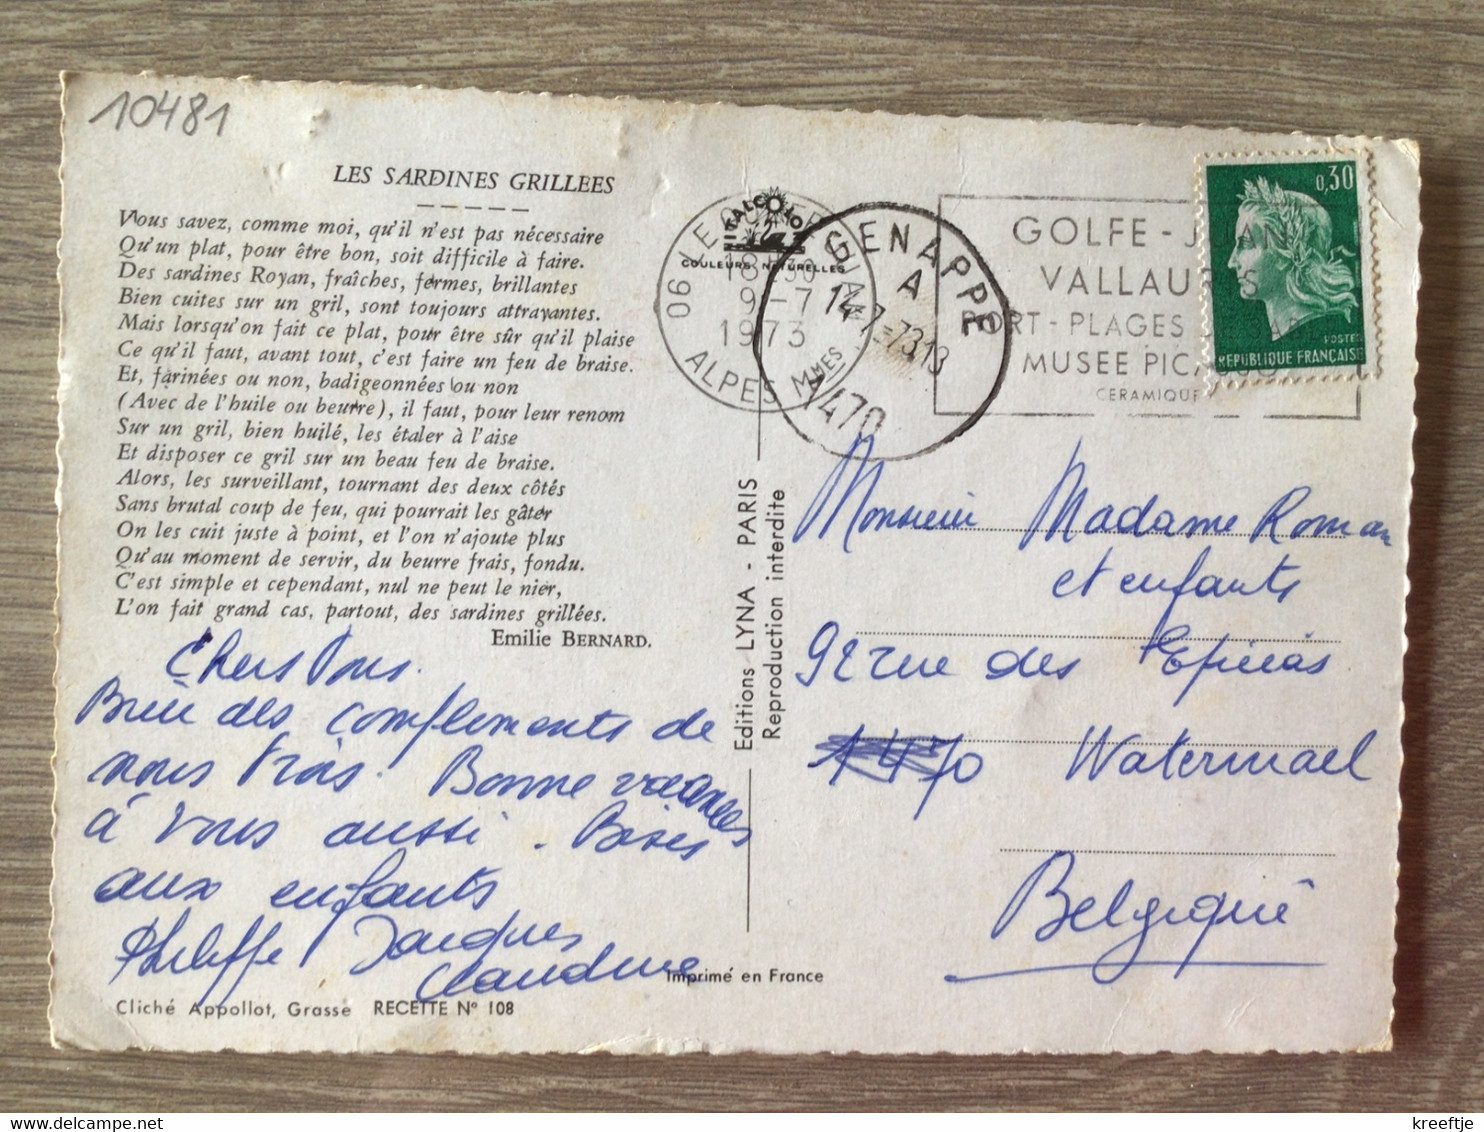 10481
LES SARDINES GRILLEES
Vous savez, comme moi, qu'il n'est pas nécessaire
Qu'un plat, pour être bon, soit difficile à faire.
Des sardines Royan, fraîches, fermes, brillantes
Bien cuites sur un gril, sont toujours attrayantes.
Mais lorsqu'on fait ce plat, pour être sûr qu'il plaise
Ce qu'il faut, avant tout, c'est faire un feu de braise.
Et, farinées ou non, badigeonnées ou non
(Avec de l'huile ou beurre), il faut, pour leur renom
Sur un gril, bien huilé, les étaler à l'aise
Et disposer ce gril sur un beau feu de braise.
Alors, les surveillant, tournant des deux côtés
Sans brutal coup de feu, qui pourrait les gâter
On les cuit juste à point, et l'on n'ajoute plus
Qu'au moment de servir, du beurre frais, fondu.
C'est simple et cependant, nul ne peut le nier,
L'on fait grand cas, partout, des sardines grillées.
Emilie BERNARD.
Chers Vous.
des compléments de
nous trois. Bonne vacances
à vous aussi. Bises
aux enfants
Philippe Jacques
Claudine
Cliché Appollot, Grasse RECETTE N° 108
Imprimé en France
Editions LYNA - PARIS
Reproduction interdite
ITALCOLOR
COULEURS NATURELLES
06
18 30
9-7
1973
ALPES MMES
GENAPPE
A
14-7-73 13
1470
GOLFE-JUAN
VALLAURIS
PORT - PLAGES
MUSEE PICASSO
CERAMIQUE
0,30
POSTES
REPUBLIQUE FRANCAISE
Monsieur Madame Roman
et enfants
92 rue des Epicéas
1470 Watermael
Belgique
kreeftje